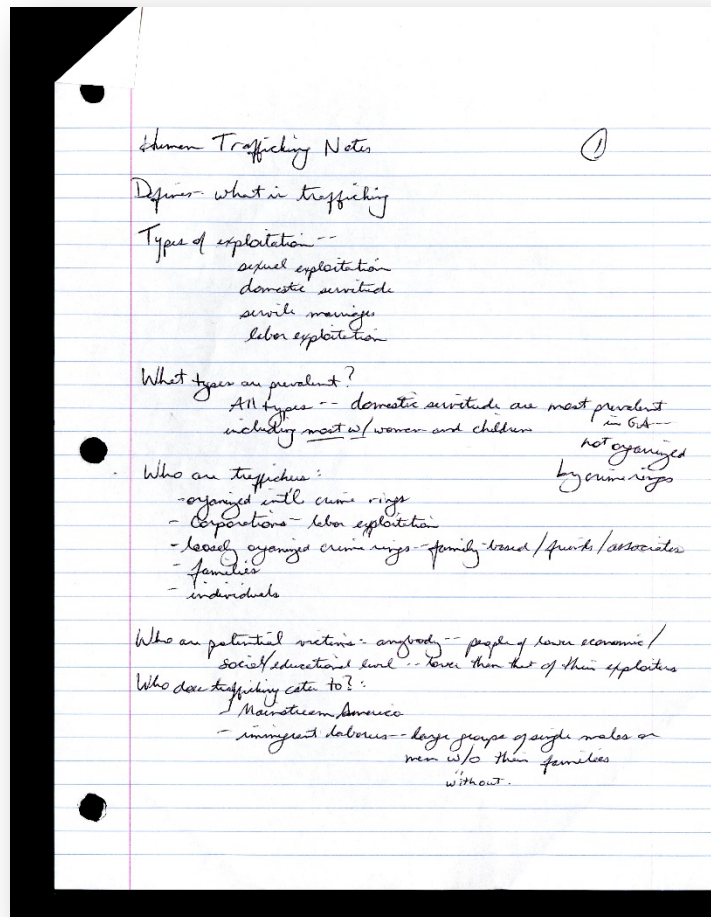 Human Trafficking Notes ①
Defines- what is trafficking
Types of exploitation --
sexual exploitation
domestic servitude
servile marriages
labor exploitation
What types are prevalent?
All types -- domestic servitude are most prevalent
including most w/ women and children in GA --
not organized
by crime rings
Who are traffickers:
- organized int'l crime rings
- Corporations - labor exploitation
- loosely organized crime rings - family-based / friends / associates
- families
- individuals
Who are potential victims: anybody -- people of lower economic /
social/educational level -- lower than that of their exploiters
Who does trafficking cater to?:
- Mainstream America
- immigrant laborers -- large groups of single males or
men w/o their families
"without.